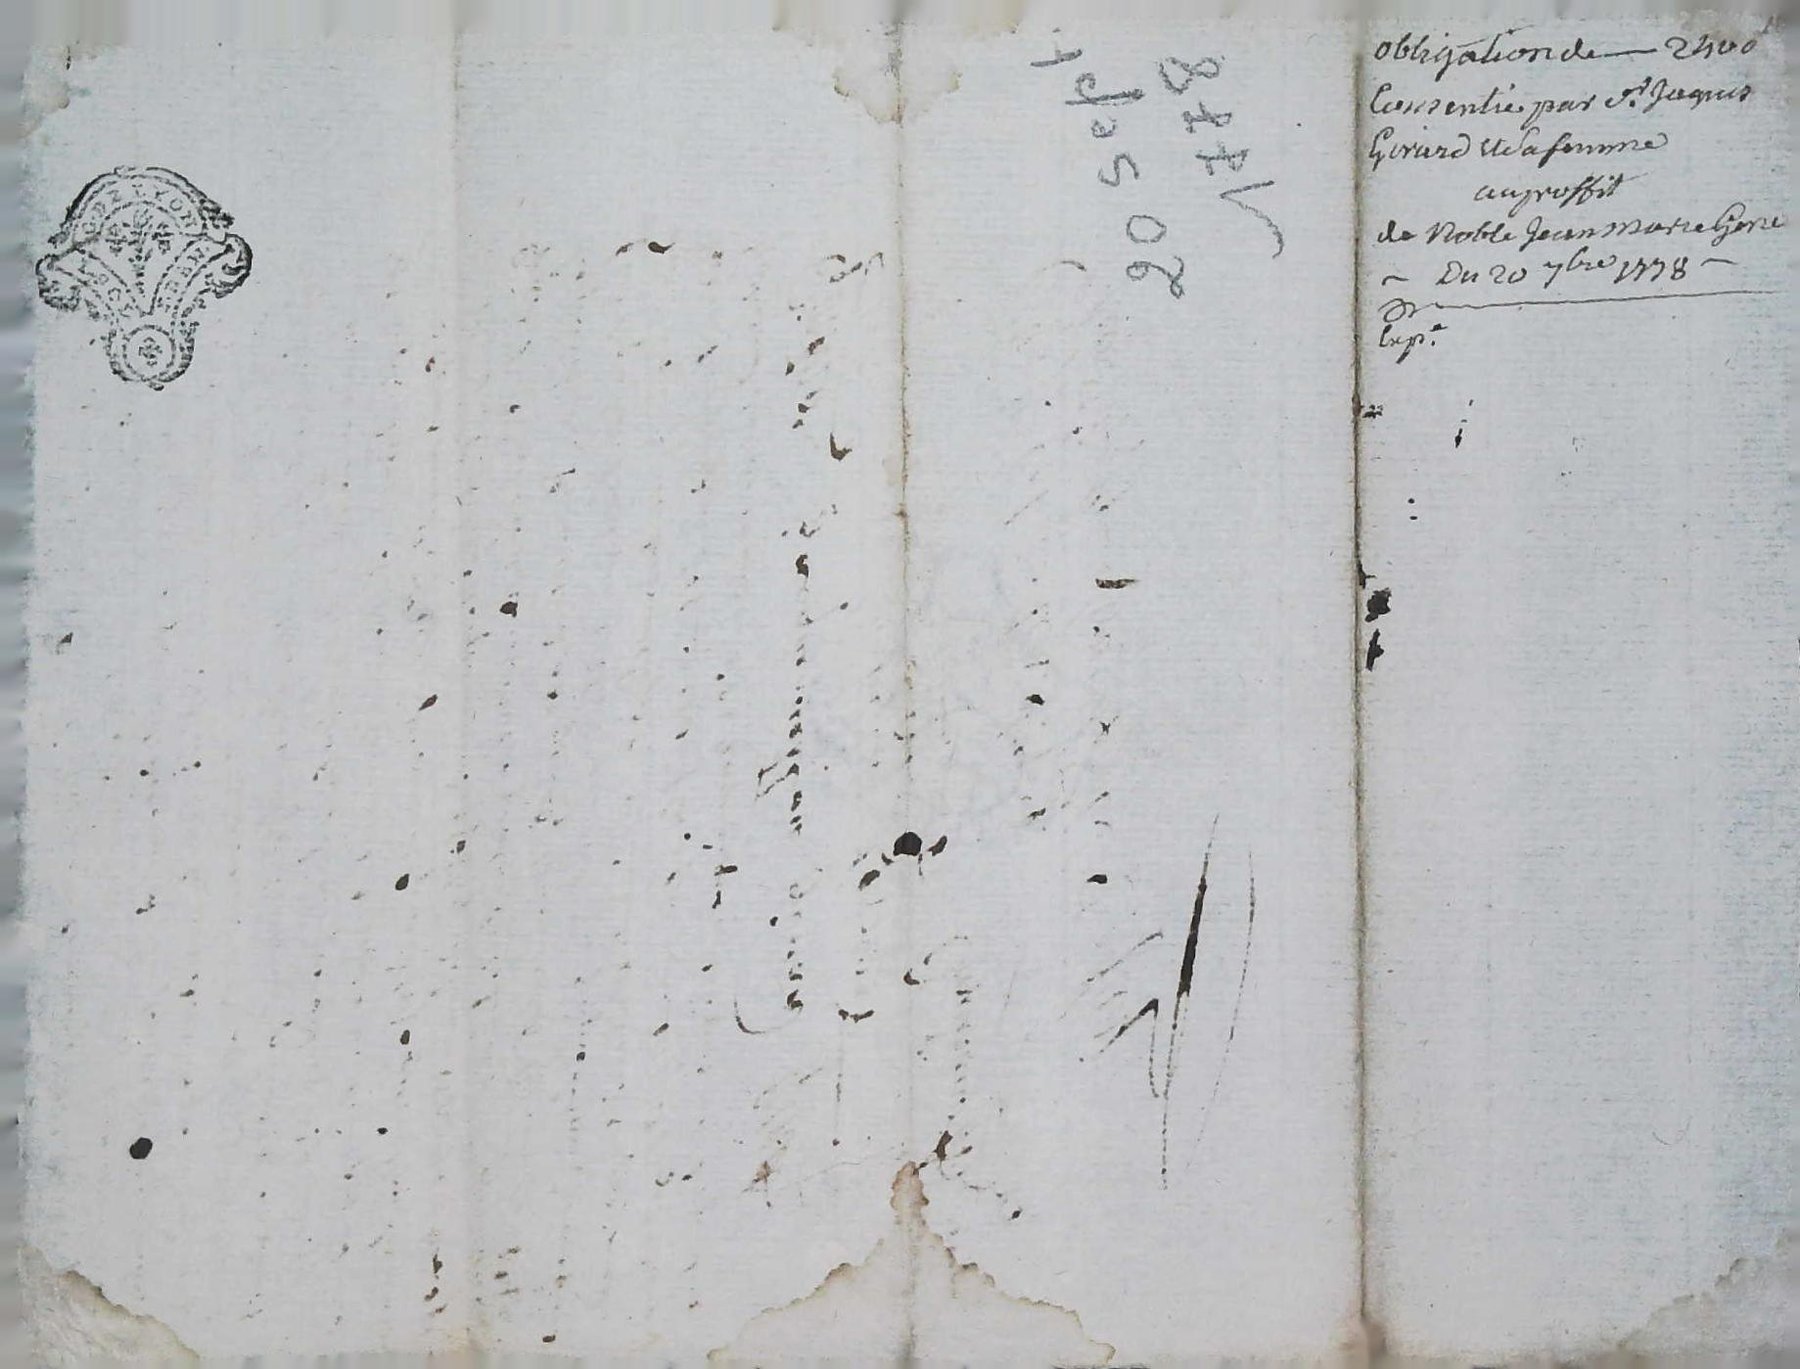 obligation de — 2400
Consentie par Sr. Jaques
Girard et sa femme
au proffit
de Noble Jean Marie
~ Du 20 7bre 1778 ~
Exp.e
20 sept
1778